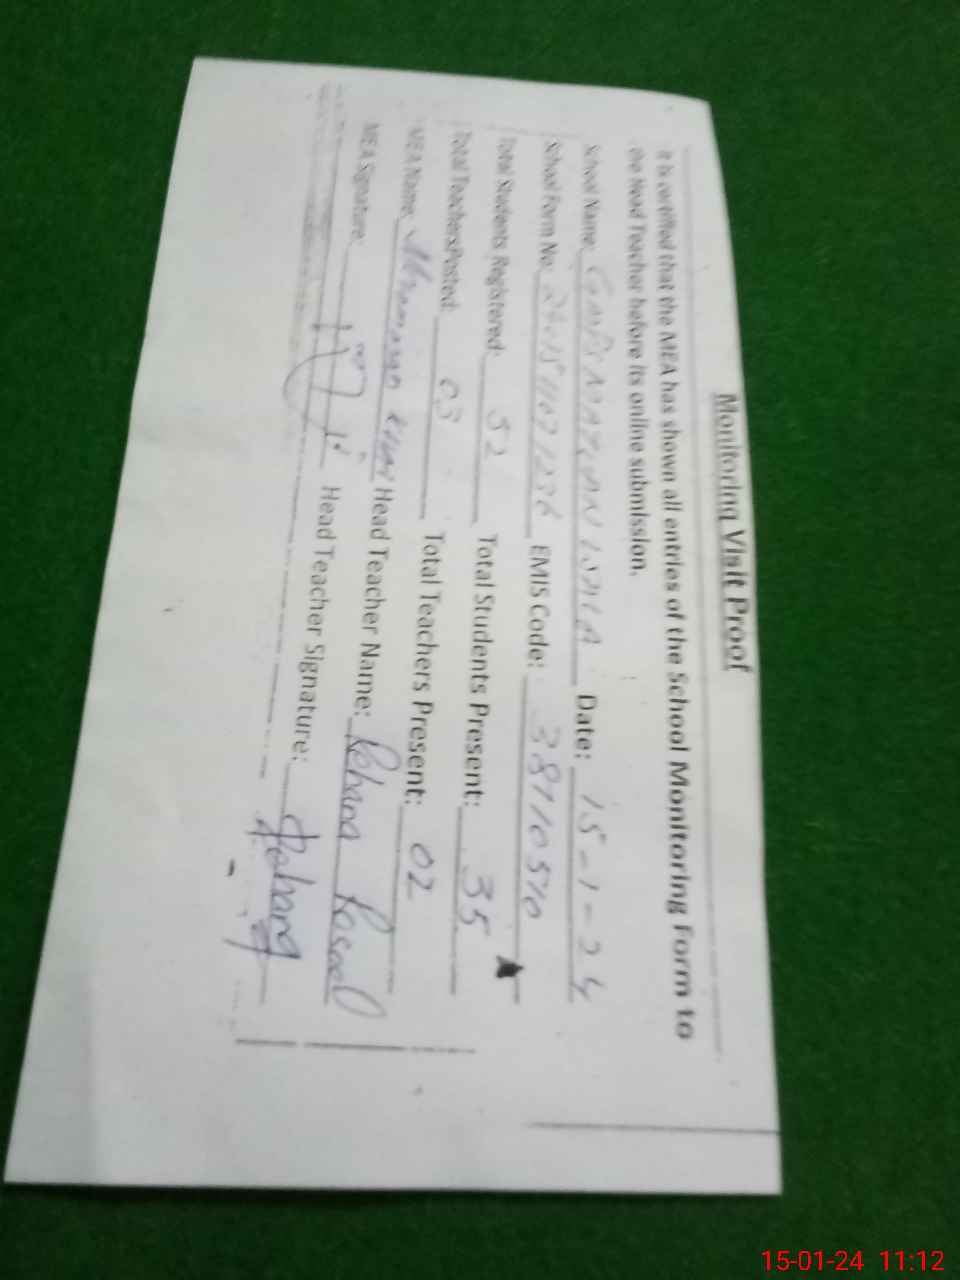 Monitoring Visit Proof
It is certified that the MEA has shown all entries of the School Monitoring Form to
the Head Teacher before its online submission.
School Name: GMPS MAZIAN WALA Date: 15-1-24
School Form No: EMIS Code: 38110510
Total Students Registered: 52 Total Students Present: 35
Total Teachers Posted: 03 Total Teachers Present: 02
MEA Name: Khan Head Teacher Name: Rehana Rasool
MEA Signature: Head Teacher Signature: Rehana
15-01-24 11:12